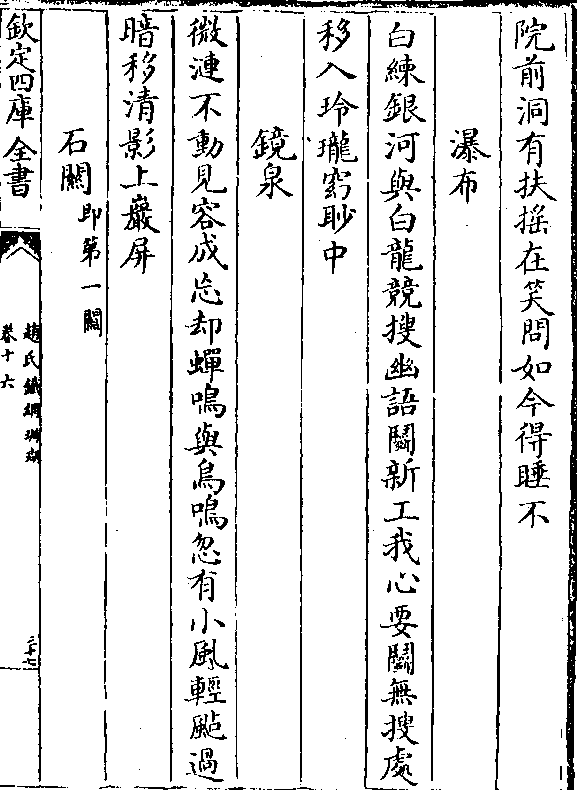 院前洞有扶摇在笑問如今得睡不
瀑布
白練銀河與白龍競搜幽語鬭新工我心要鬭無搜處
移入玲瓏竅眇中
鏡泉
微漣不動見容成忘却蟬鳴與鳥鳴忽有小風輕颭過
暗移清影上巖屏
石關即第一關
欽定四庫全書
趙氏鐵網珊瑚
卷十六
三十七